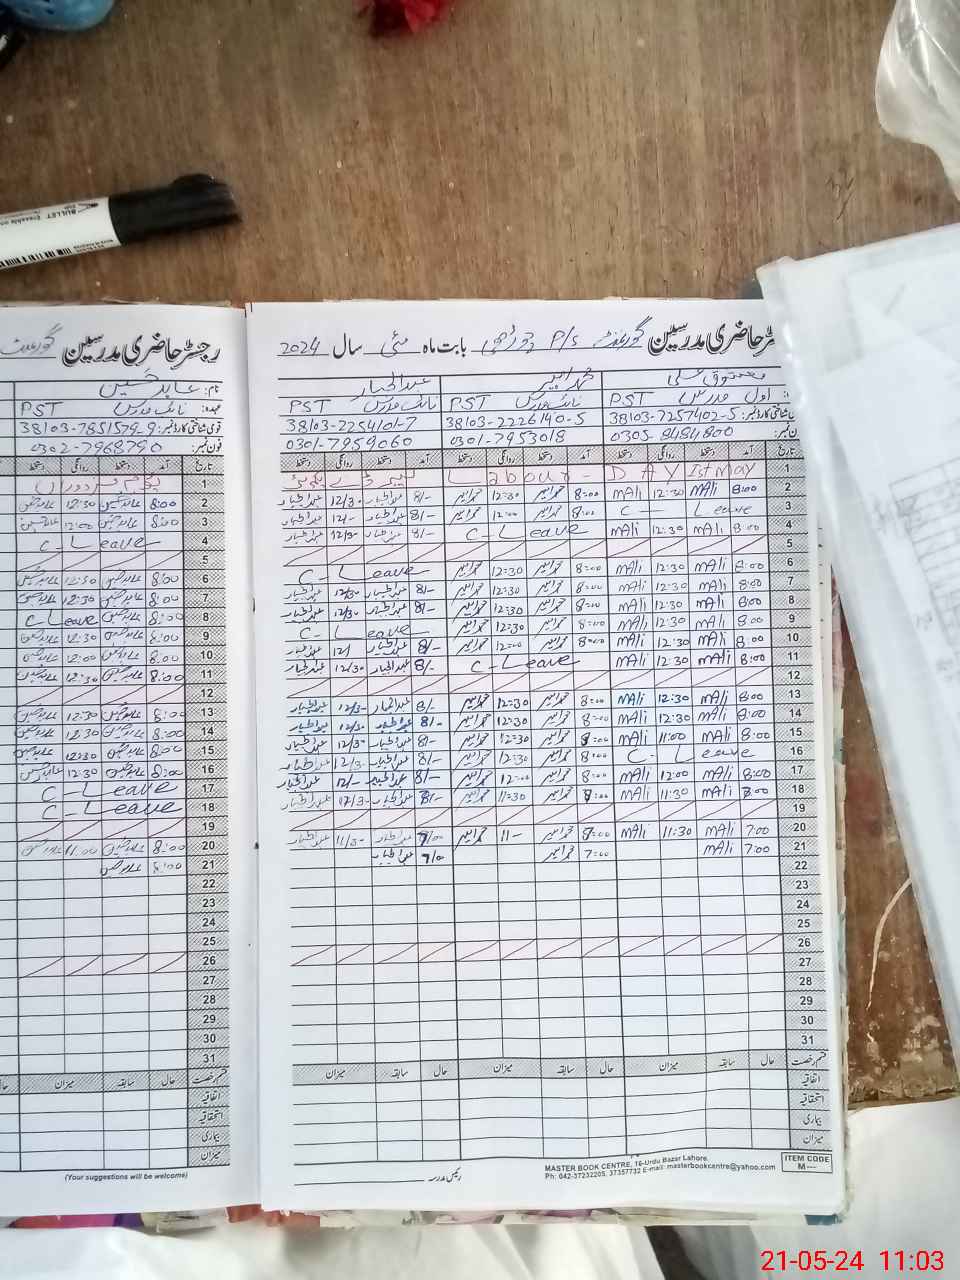 رجسٹر حاضری مدرسین گورنمنٹ P/S بابت ماہ مئی سال 2024
معشوق علی عبدالجبار
اول مدرس PST نائب مدرس PST نائب مدرس PST
38103-7257402-5 38103-2226140-5 38103-2254101-7
0305-8484800 0301-7953018 0301-7959060
آمد دستخط روانگی دستخط آمد دستخط روانگی دستخط آمد دستخط روانگی دستخط
1 Labour - DAY 1st May
2 8:00 MAli 12:30 MAli 8:00 12:30 8/- عبدالجبار 12/30 عبدالجبار
3 C - Leave 8:00 12:00 8/- عبدالجبار 12/- عبدالجبار
4 8:00 MAli 12:30 MAli C - Leave 8/- عبدالجبار 12/30 عبدالجبار
5
6 8:00 MAli 12:30 MAli 8:00 12:30 C - Leave
7 8:00 MAli 12:30 MAli 8:00 12:30 8/- عبدالجبار 12/30 عبدالجبار
8 8:00 MAli 12:30 MAli 8:00 12:30 8/- عبدالجبار 12/30 عبدالجبار
9 8:00 MAli 12:30 MAli 8:00 12:30 C - Leave
10 8:00 MAli 12:30 MAli 8:00 12:00 8/- عبدالجبار 12/ عبدالجبار
11 8:00 MAli 12:30 MAli C - Leave 8/- عبدالجبار 12/30 عبدالجبار
12
13 8:00 MAli 12:30 MAli 8:00 12:30 8/- عبدالجبار 12/3- عبدالجبار
14 8:00 MAli 12:30 MAli 8:00 12:30 8/- عبدالجبار 12/3- عبدالجبار
15 8:00 MAli 11:00 MAli 8:00 12:30 8/- عبدالجبار 12/3- عبدالجبار
16 C - Leave 8:00 12:30 8/- عبدالجبار 12/3- عبدالجبار
17 8:00 MAli 12:00 MAli 8:00 12:00 8/- عبدالجبار 12/- عبدالجبار
18 8:00 MAli 11:30 MAli 11:30 عبدالجبار 12/3- عبدالجبار
19
20 7:00 MAli 11:30 MAli 11- 7/00 عبدالجبار 11/3- عبدالجبار
21 7:00 MAli 7:00 7/0 عبدالجبار
22
23
24
25
26
27
28
29
30
31
قسم رخصت حال سابقہ میزان حال سابقہ میزان حال سابقہ میزان
اتفاقیہ
استحقاقیہ
بیماری
میزان
ITEM CODE
M---
MASTER BOOK CENTRE, 16-Urdu Bazar Lahore.
Ph: 042-37232205, 37357732 E-mail: masterbookcentre@yahoo.com
رئیس مدرسہ
رجسٹر حاضری مدرسین گورنمنٹ
نام: عابد حسین
عہدہ: نائب مدرس PST
قومی شناختی کارڈ نمبر: 38103-7851579-9
فون نمبر: 0302-7968790
تاریخ آمد دستخط روانگی دستخط
1
2 8:00 عابد حسین 12:30
3 8:00 عابد حسین 12:00
4 C - Leave
5
6 8:00 عابد حسین 12:30
7 8:00 عابد حسین 12:30
8 8:00 C Leave
9 8:00 عابد حسین 12:30
10 8:00 عابد حسین 12:00
11 8:00 عابد حسین 11:30
12
13 8:00 عابد حسین 12:30
14 8:00 عابد حسین 12:30
15 8:00 عابد حسین 12:30
16 8:00 عابد حسین 12:30
17 C - Leave
18 C - Leave
19
20 8:00 عابد حسین 11:00
21 8:00 عابد حسین
22
23
24
25
26
27
28
29
30
31
قسم رخصت حال سابقہ میزان حال
اتفاقیہ
استحقاقیہ
بیماری
میزان
(Your suggestions will be welcome)
BULLET
21-05-24 11:03